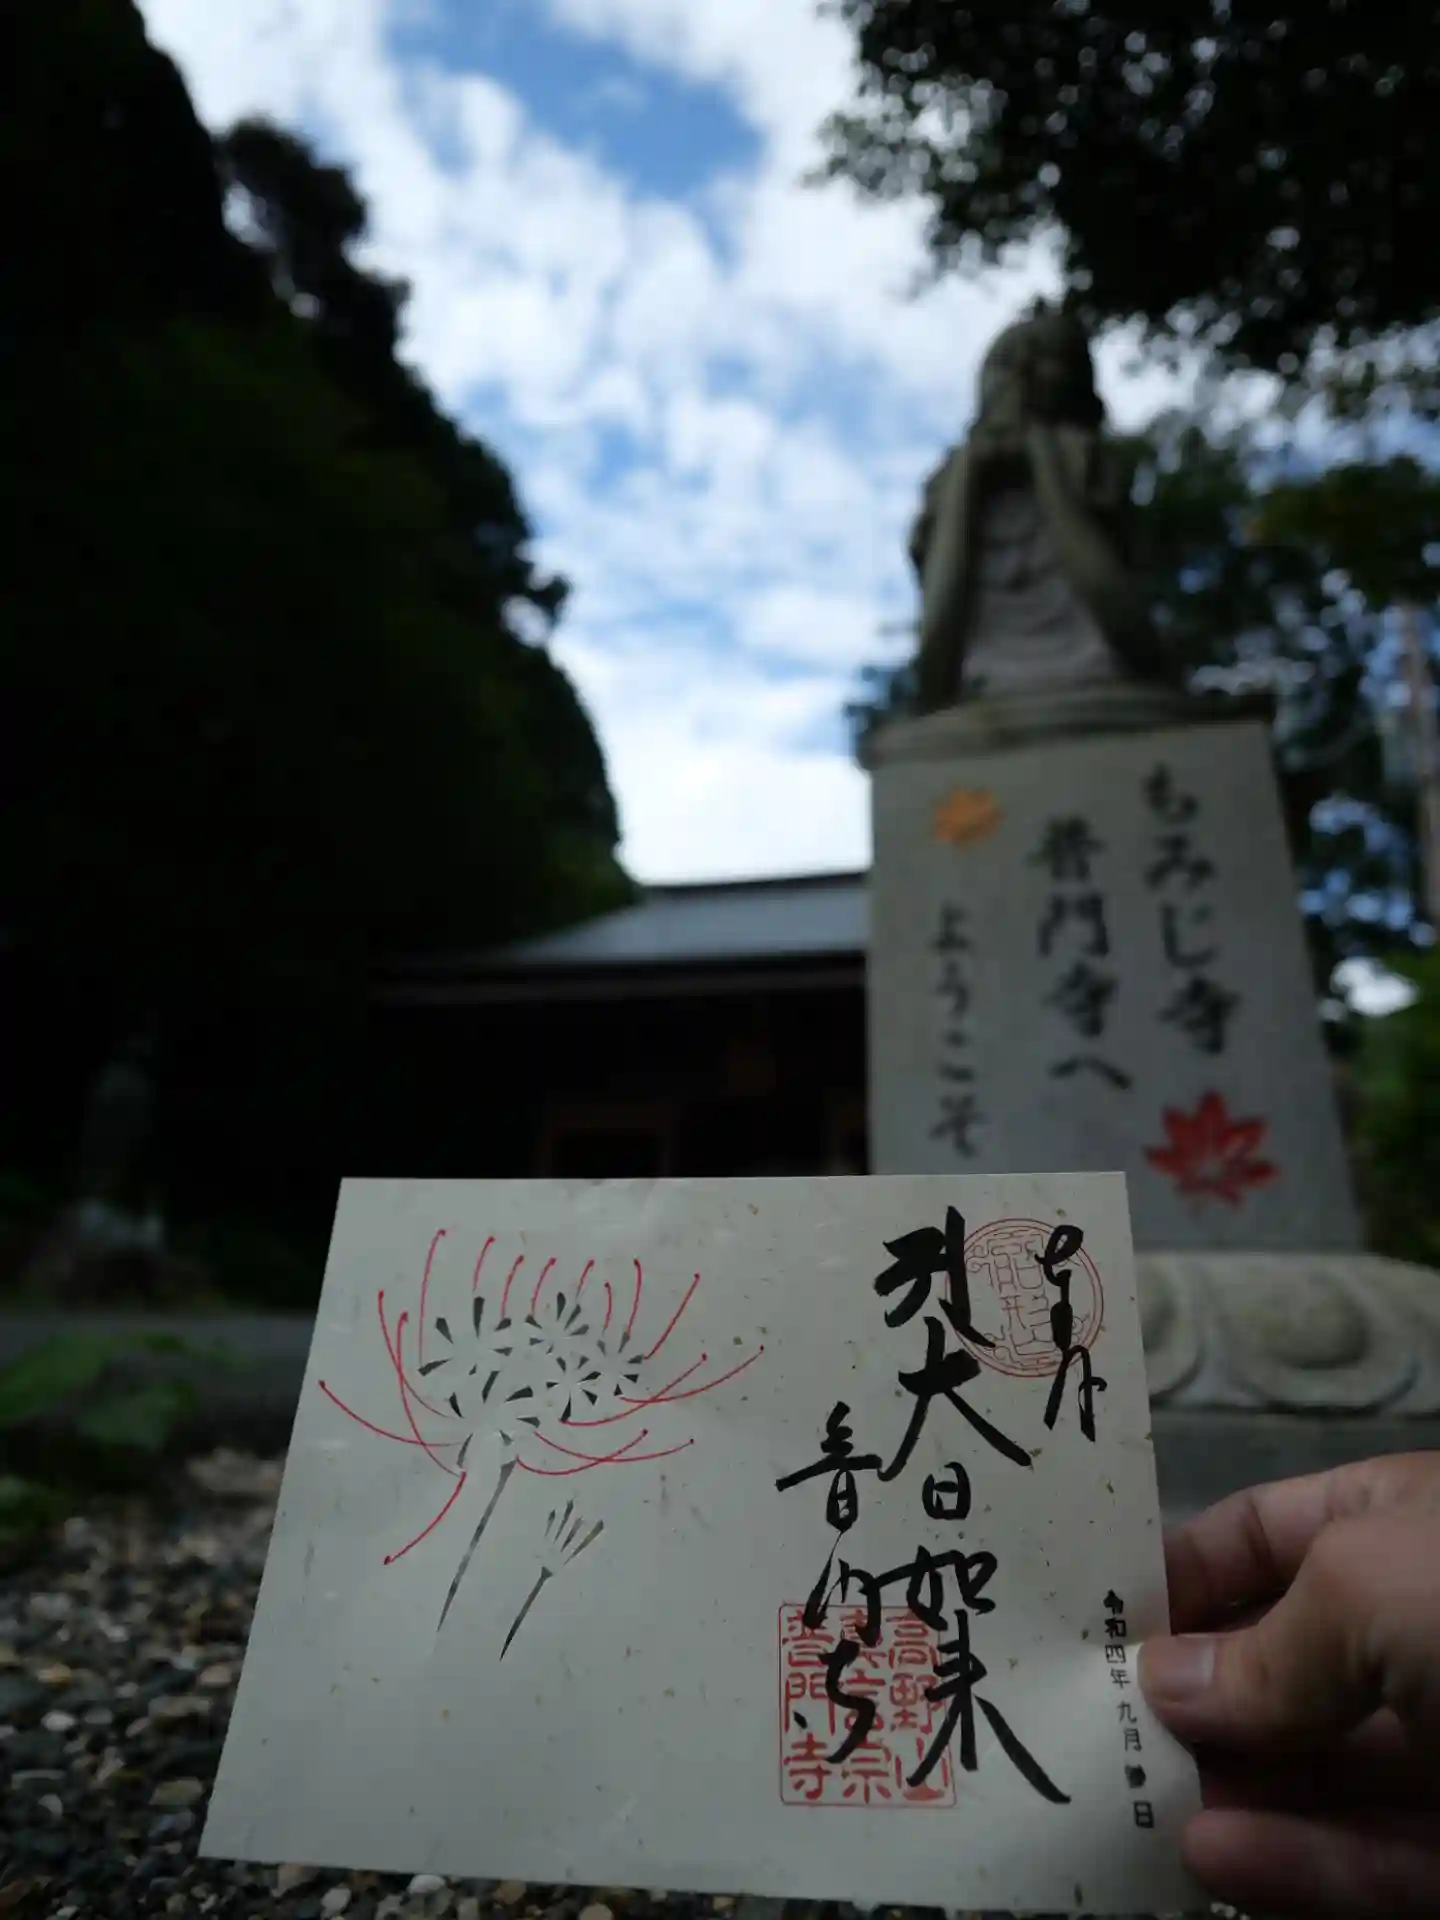 もみじ寺
普門寺へ
ようこそ
大日如来
令和四年九月
日
高野山
真言宗
普門寺